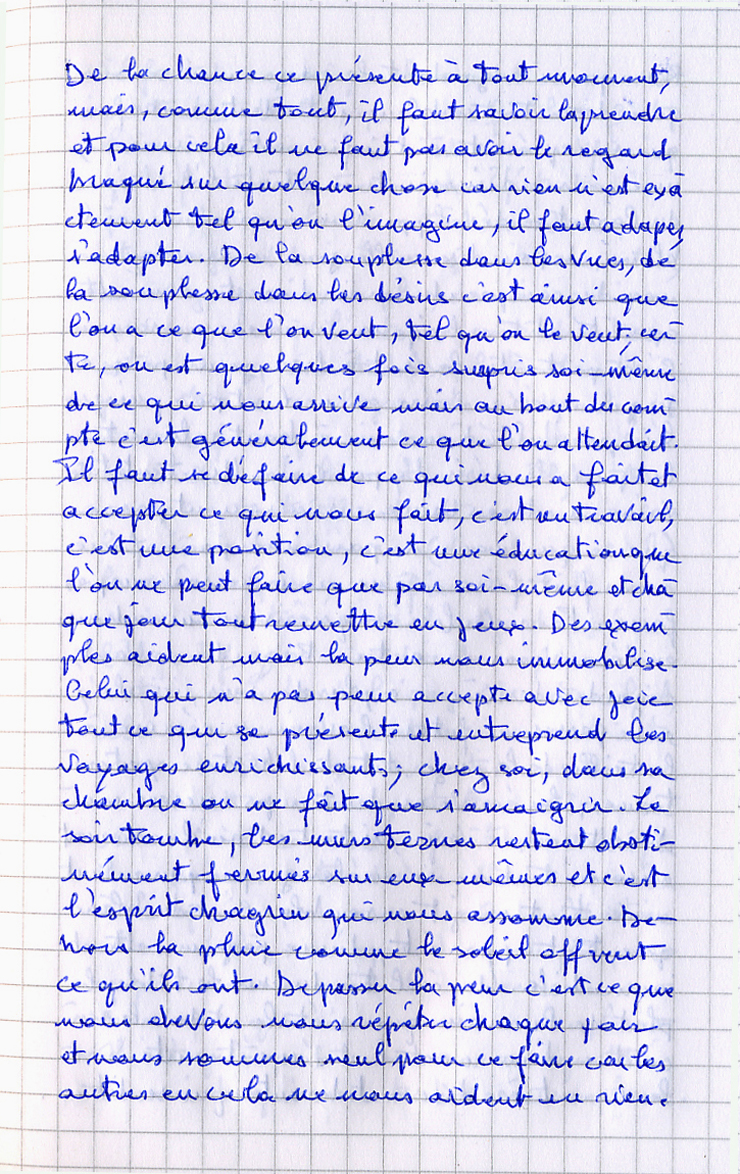 De la chance ce présente à tout moment,
mais, comme tout, il faut savoir la prendre
et pour cela il ne faut pas avoir le regard
braqué sur quelque chose car rien n'est exa
ctement tel qu'on l'imagine, il faut adapes
s'adapter. De la souplesse dans les vues, de
la souplesse dans les désirs c'est ainsi que
l'on a ce que l'on veut, tel qu'on le veut; cer
te, on est quelques fois surpris soi-même
de ce qui nous arrive mais au bout du com
pte c'est généralement ce que l'on attendait.
Il faut se défaire de ce qui nous a fait et
accepter ce qui nous fait, c'est un travail,
c'est une position, c'est une éducation que
l'on ne peut faire que par soi-même et cha
que jour tout remettre en jeux. Des exem
ples aident mais la peur nous immobilise.
Celui qui n'a pas peur accepte avec joie
tout ce qui se présente et entreprend les
voyages enrichissants; chez soi, dans sa
chambre on ne fait que s'amaigrir. Le
soir tombe, les murs ternes restent obsti-
nément fermés sur eux-mêmes et c'est
l'esprit chagrin qui nous assomme. De-
hors la pluie comme le soleil offrent
ce qu'ils ont. Depasser la peur c'est ce que
nous devons nous répéter chaque jour
et nous sommes seul pour ce faire car les
autres en cela ne nous aident en rien.